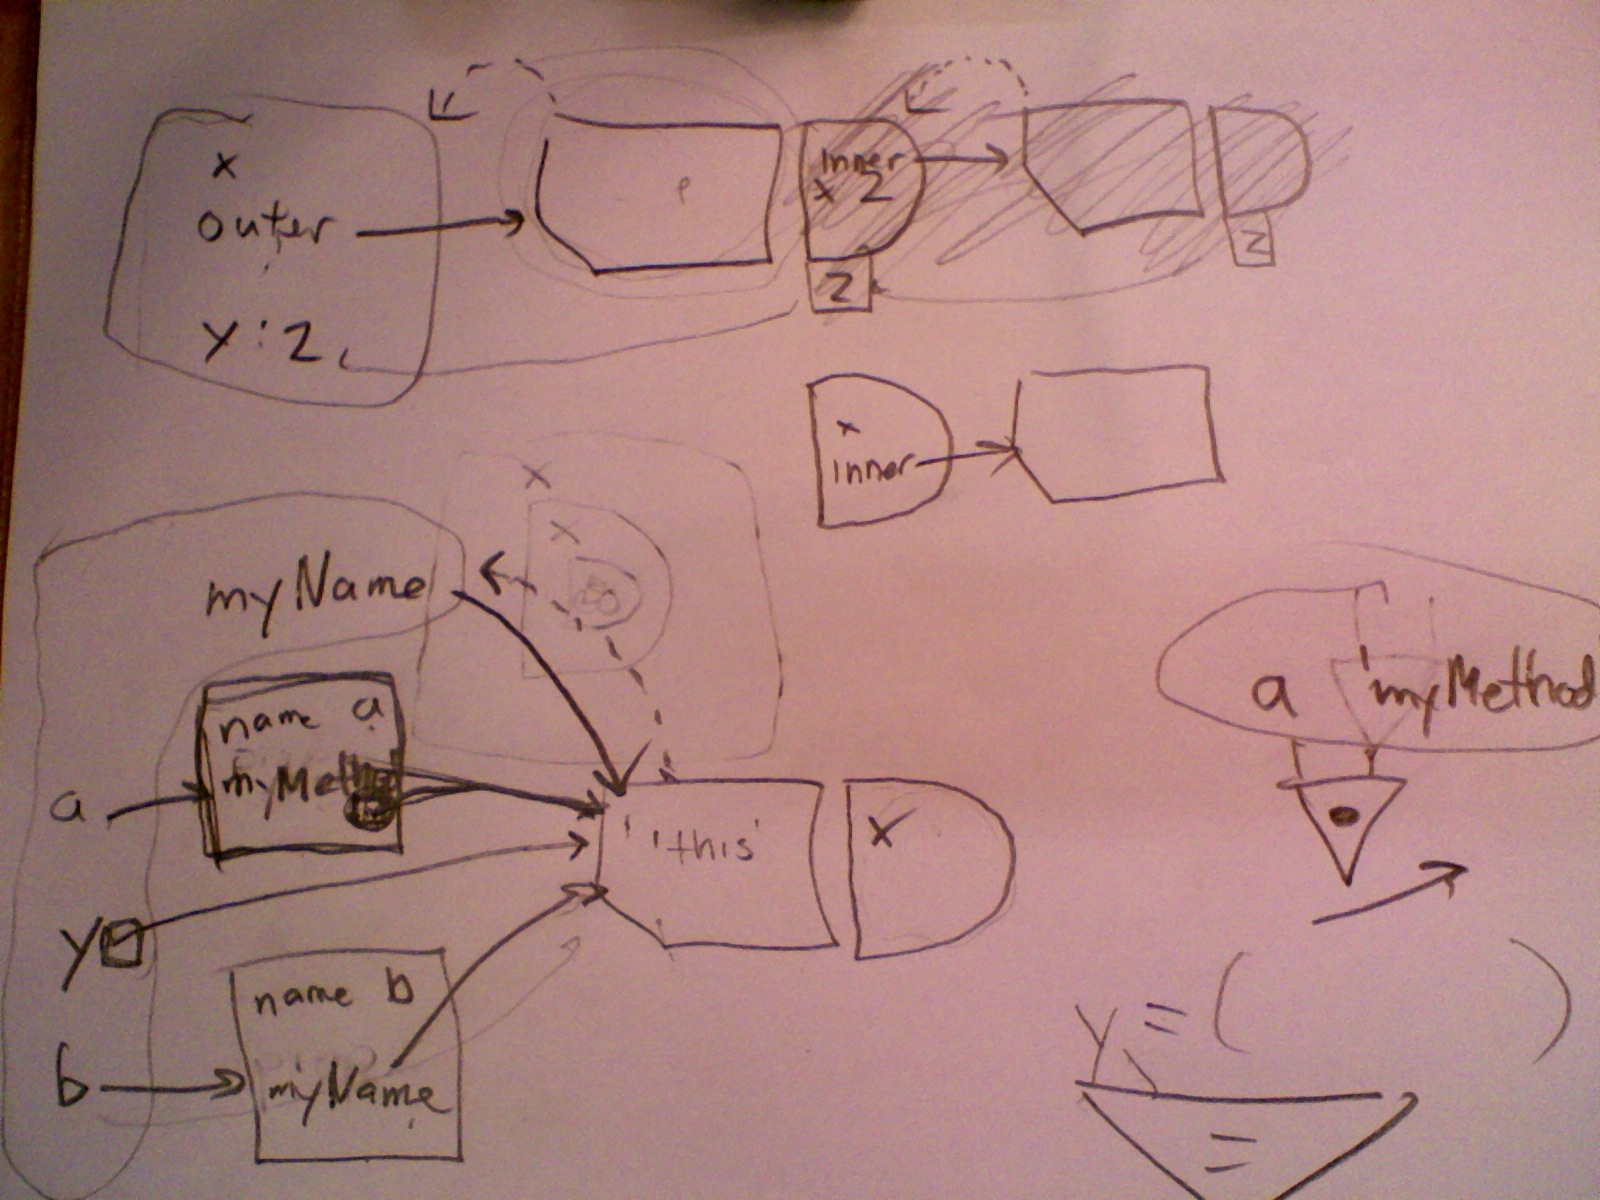 x
outer
y:2
inner
x 2
2
2
x
inner
x
x
myName
name a
myMeth
a
'this'
x
y
name b
b
myName
a
'myMethod
y = ( )
=